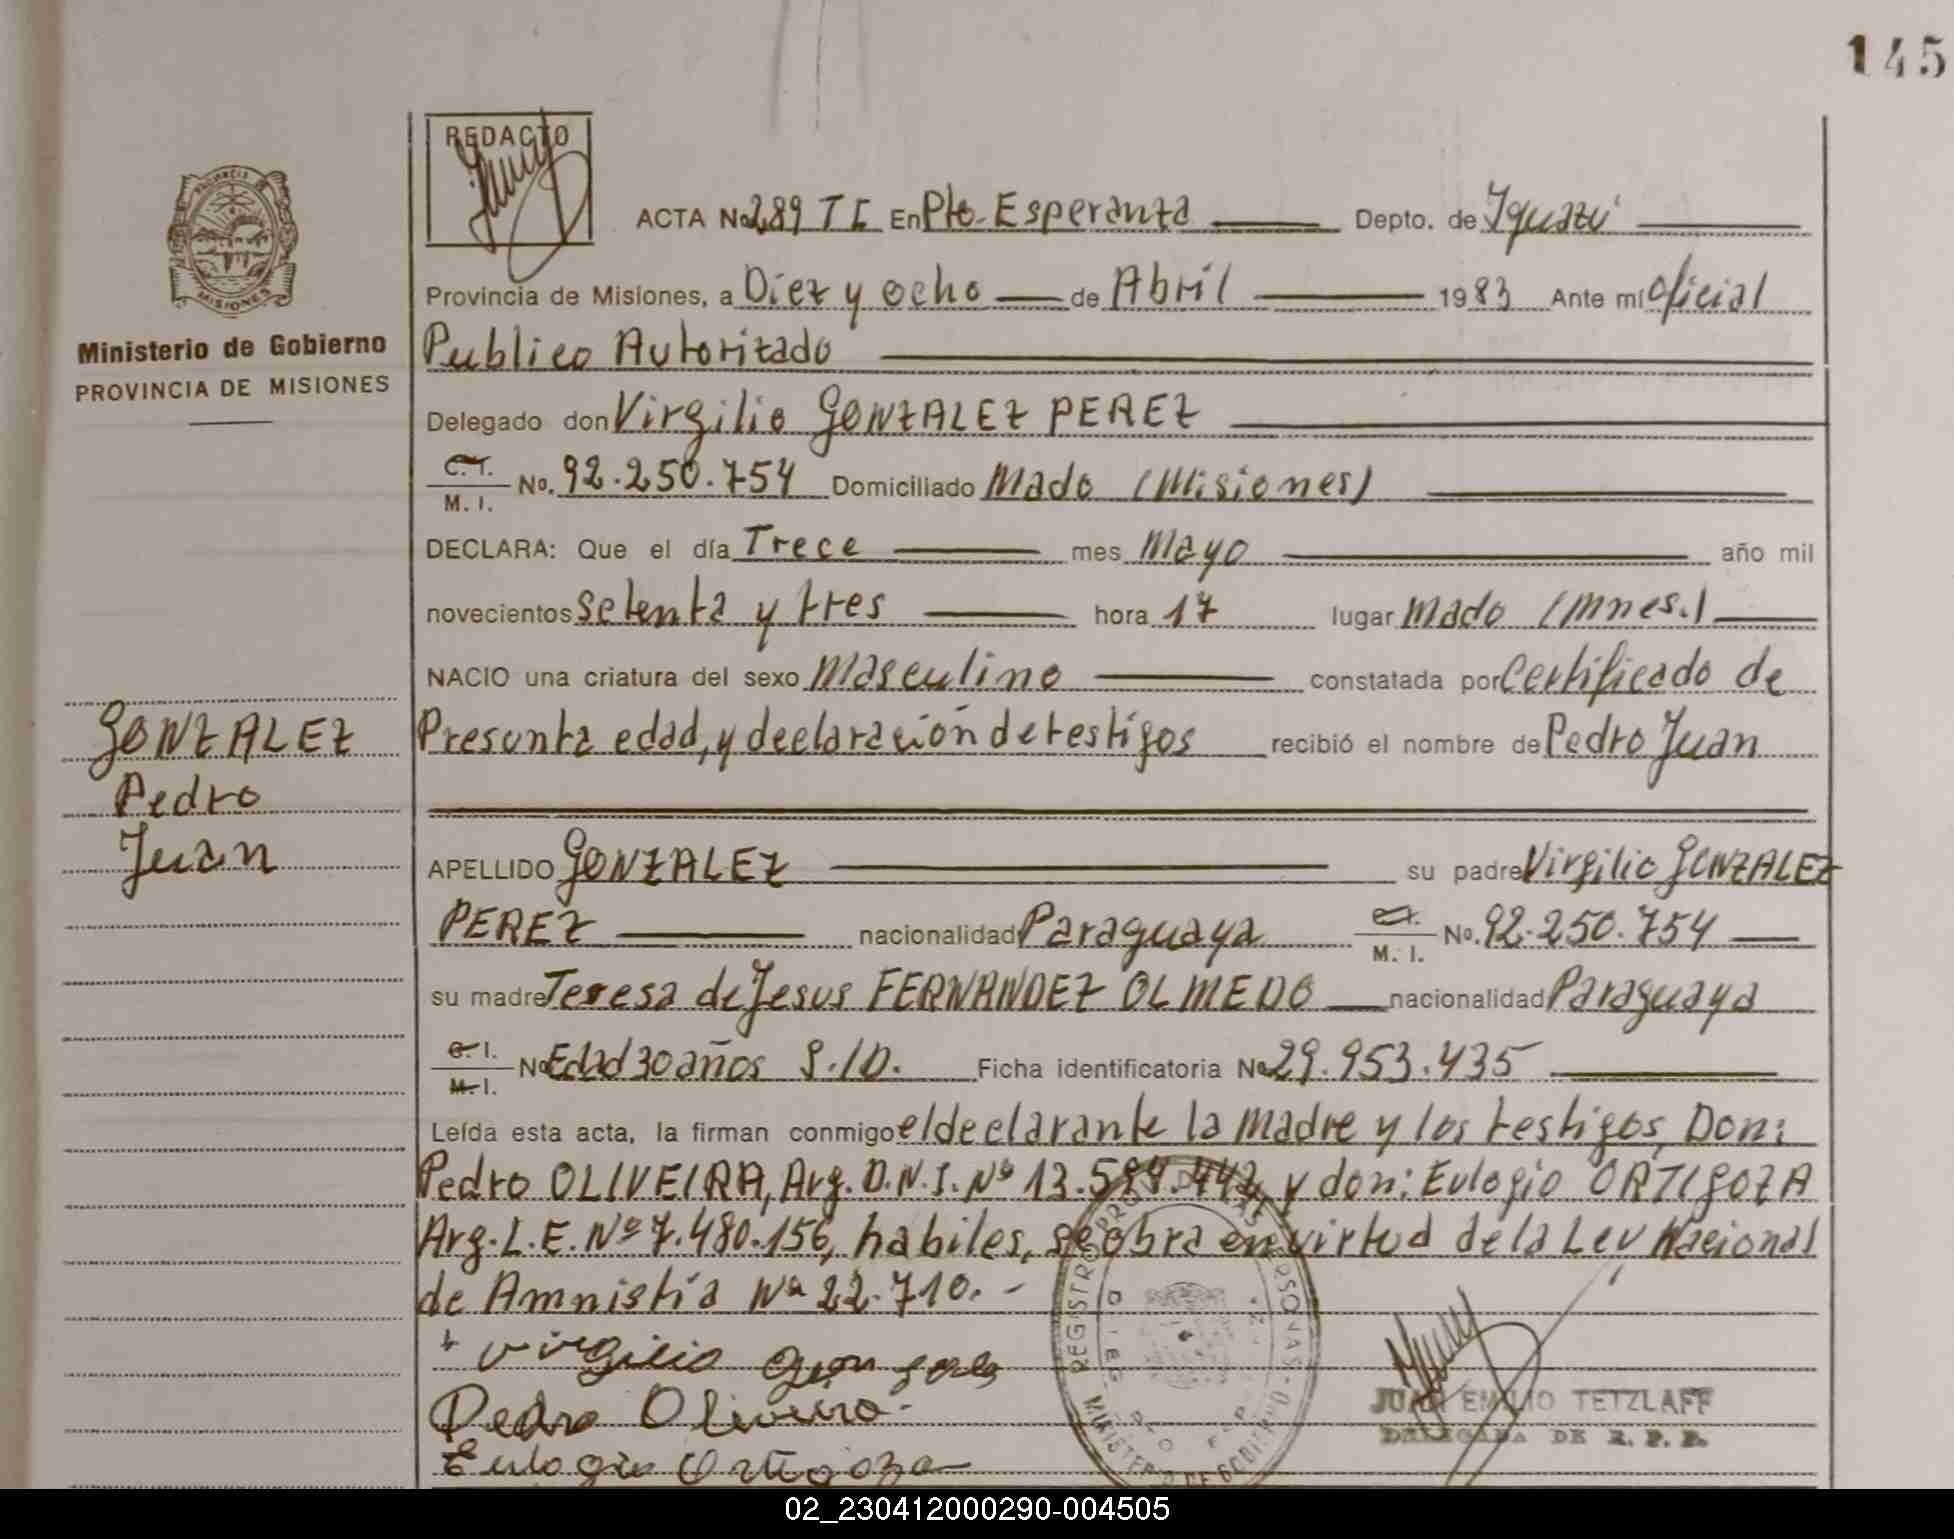 145
REDACTO
PROVINCIA
MISIONES
Ministerio de Gobierno
PROVINCIA DE MISIONES
ACTA No 289 TI En Pto. Esperanza Depto. de Iguazú
Provincia de Misiones, a Diez y ocho de Abril 1983 Ante mí Oficial
Publico Autorizado
Delegado don Virgilio GONZALEZ PEREZ
C. I. M. I. No. 92.250.754 Domiciliado Mado (Misiones)
DECLARA: Que el día Trece mes Mayo año mil
novecientos setenta y tres hora 17 lugar Mado (Mnes.)
NACIO una criatura del sexo Masculino constatada por Certificado de
Presunta edad, y declaración de testigos recibió el nombre de Pedro Juan
GONZALEZ
Pedro
Juan
APELLIDO GONZALEZ su padre Virgilio GONZALEZ
PEREZ nacionalidad Paraguaya C. I. M. I. No. 92.250.754
su madre Teresa de Jesus FERNANDEZ OLMEDO nacionalidad Paraguaya
C. I. M. I. No Edad 30 años S./D. Ficha identificatoria No 29.953.435
Leída esta acta, la firman conmigo el declarante la madre y los testigos, Don:
Pedro OLIVEIRA, Arg. D.N.I. Nº 13. y don: Eulogio ORTIGOZA
Arg. L.E. Nº 7.480.156, habiles, se obra en virtud de la Ley Nacional
de Amnistía Nº 22.710.-
Virgilio
Pedro Oliveira
Eulogio Ortigoza
REGISTRO PROV. DE LAS PERSONAS
MINISTERIO DE GOBIERNO
JUAN EMILIO TETZLAFF
DELEGADA DE R. P. P.
02_230412000290-004505